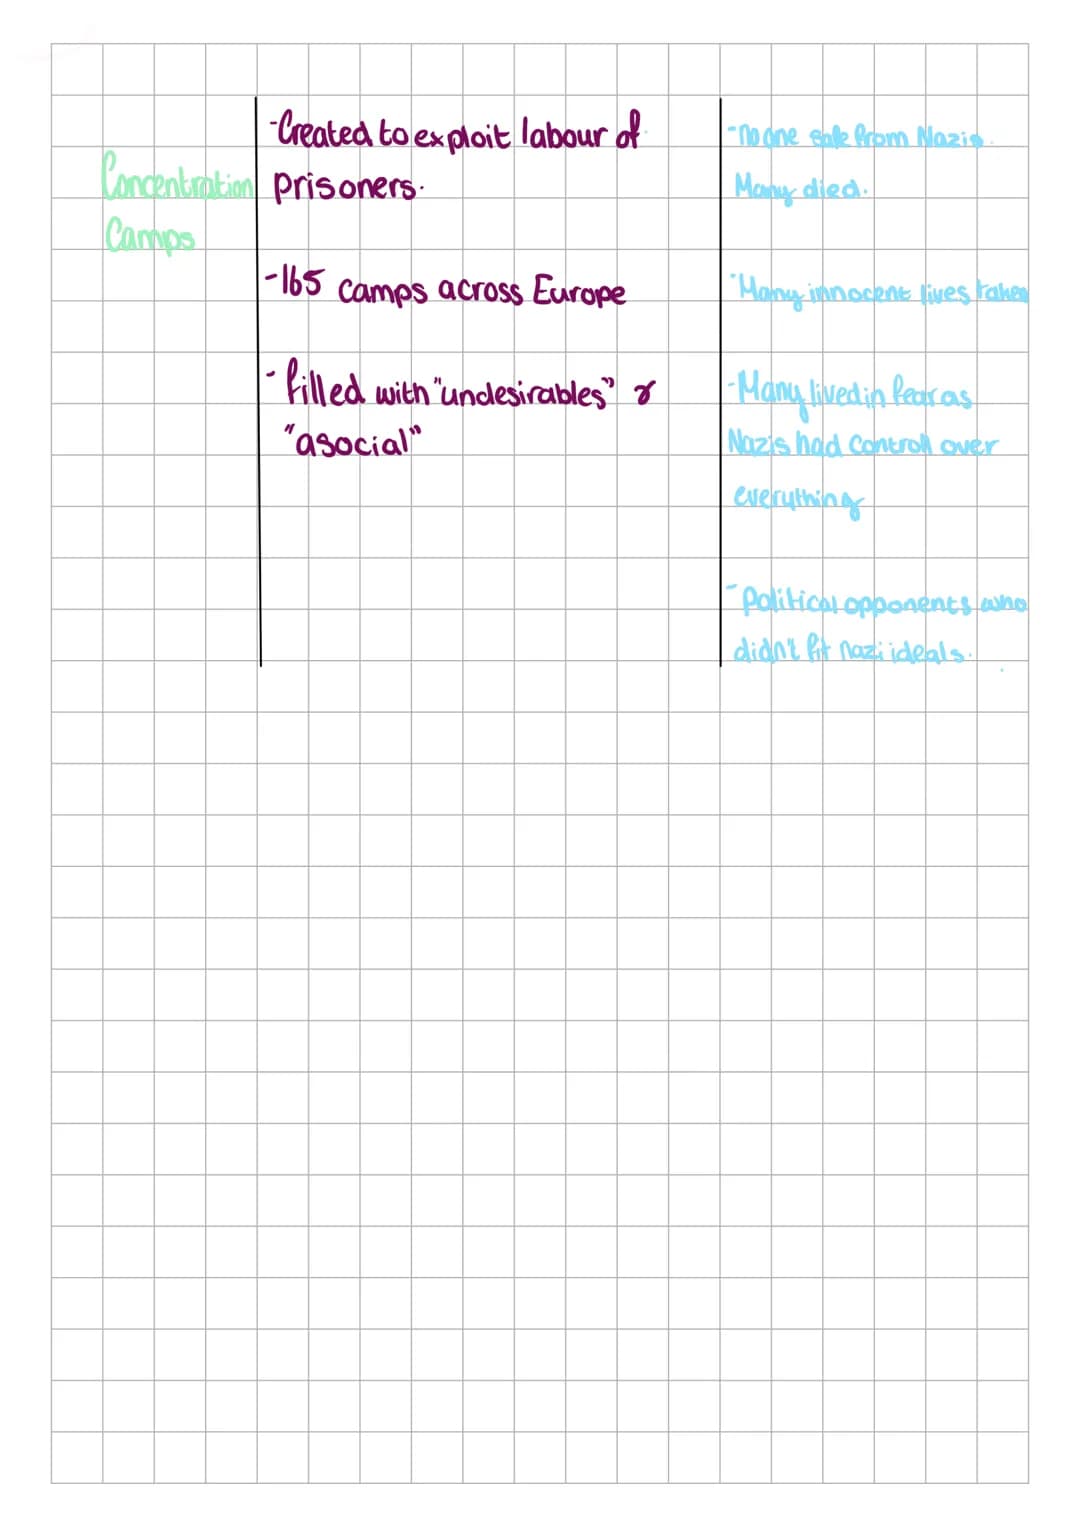 Concentration
Camps
-Created to exploit labour of
prisoners.
-165 camps across Europe
-filled with "undesirables" &
"asocial"
-no one safe from Nazis.
Many died.
-Many innocent lives taken
-Many lived in fear as
Nazis had Controll over
everything
-Political opponents who
didn't fit nazi ideals.